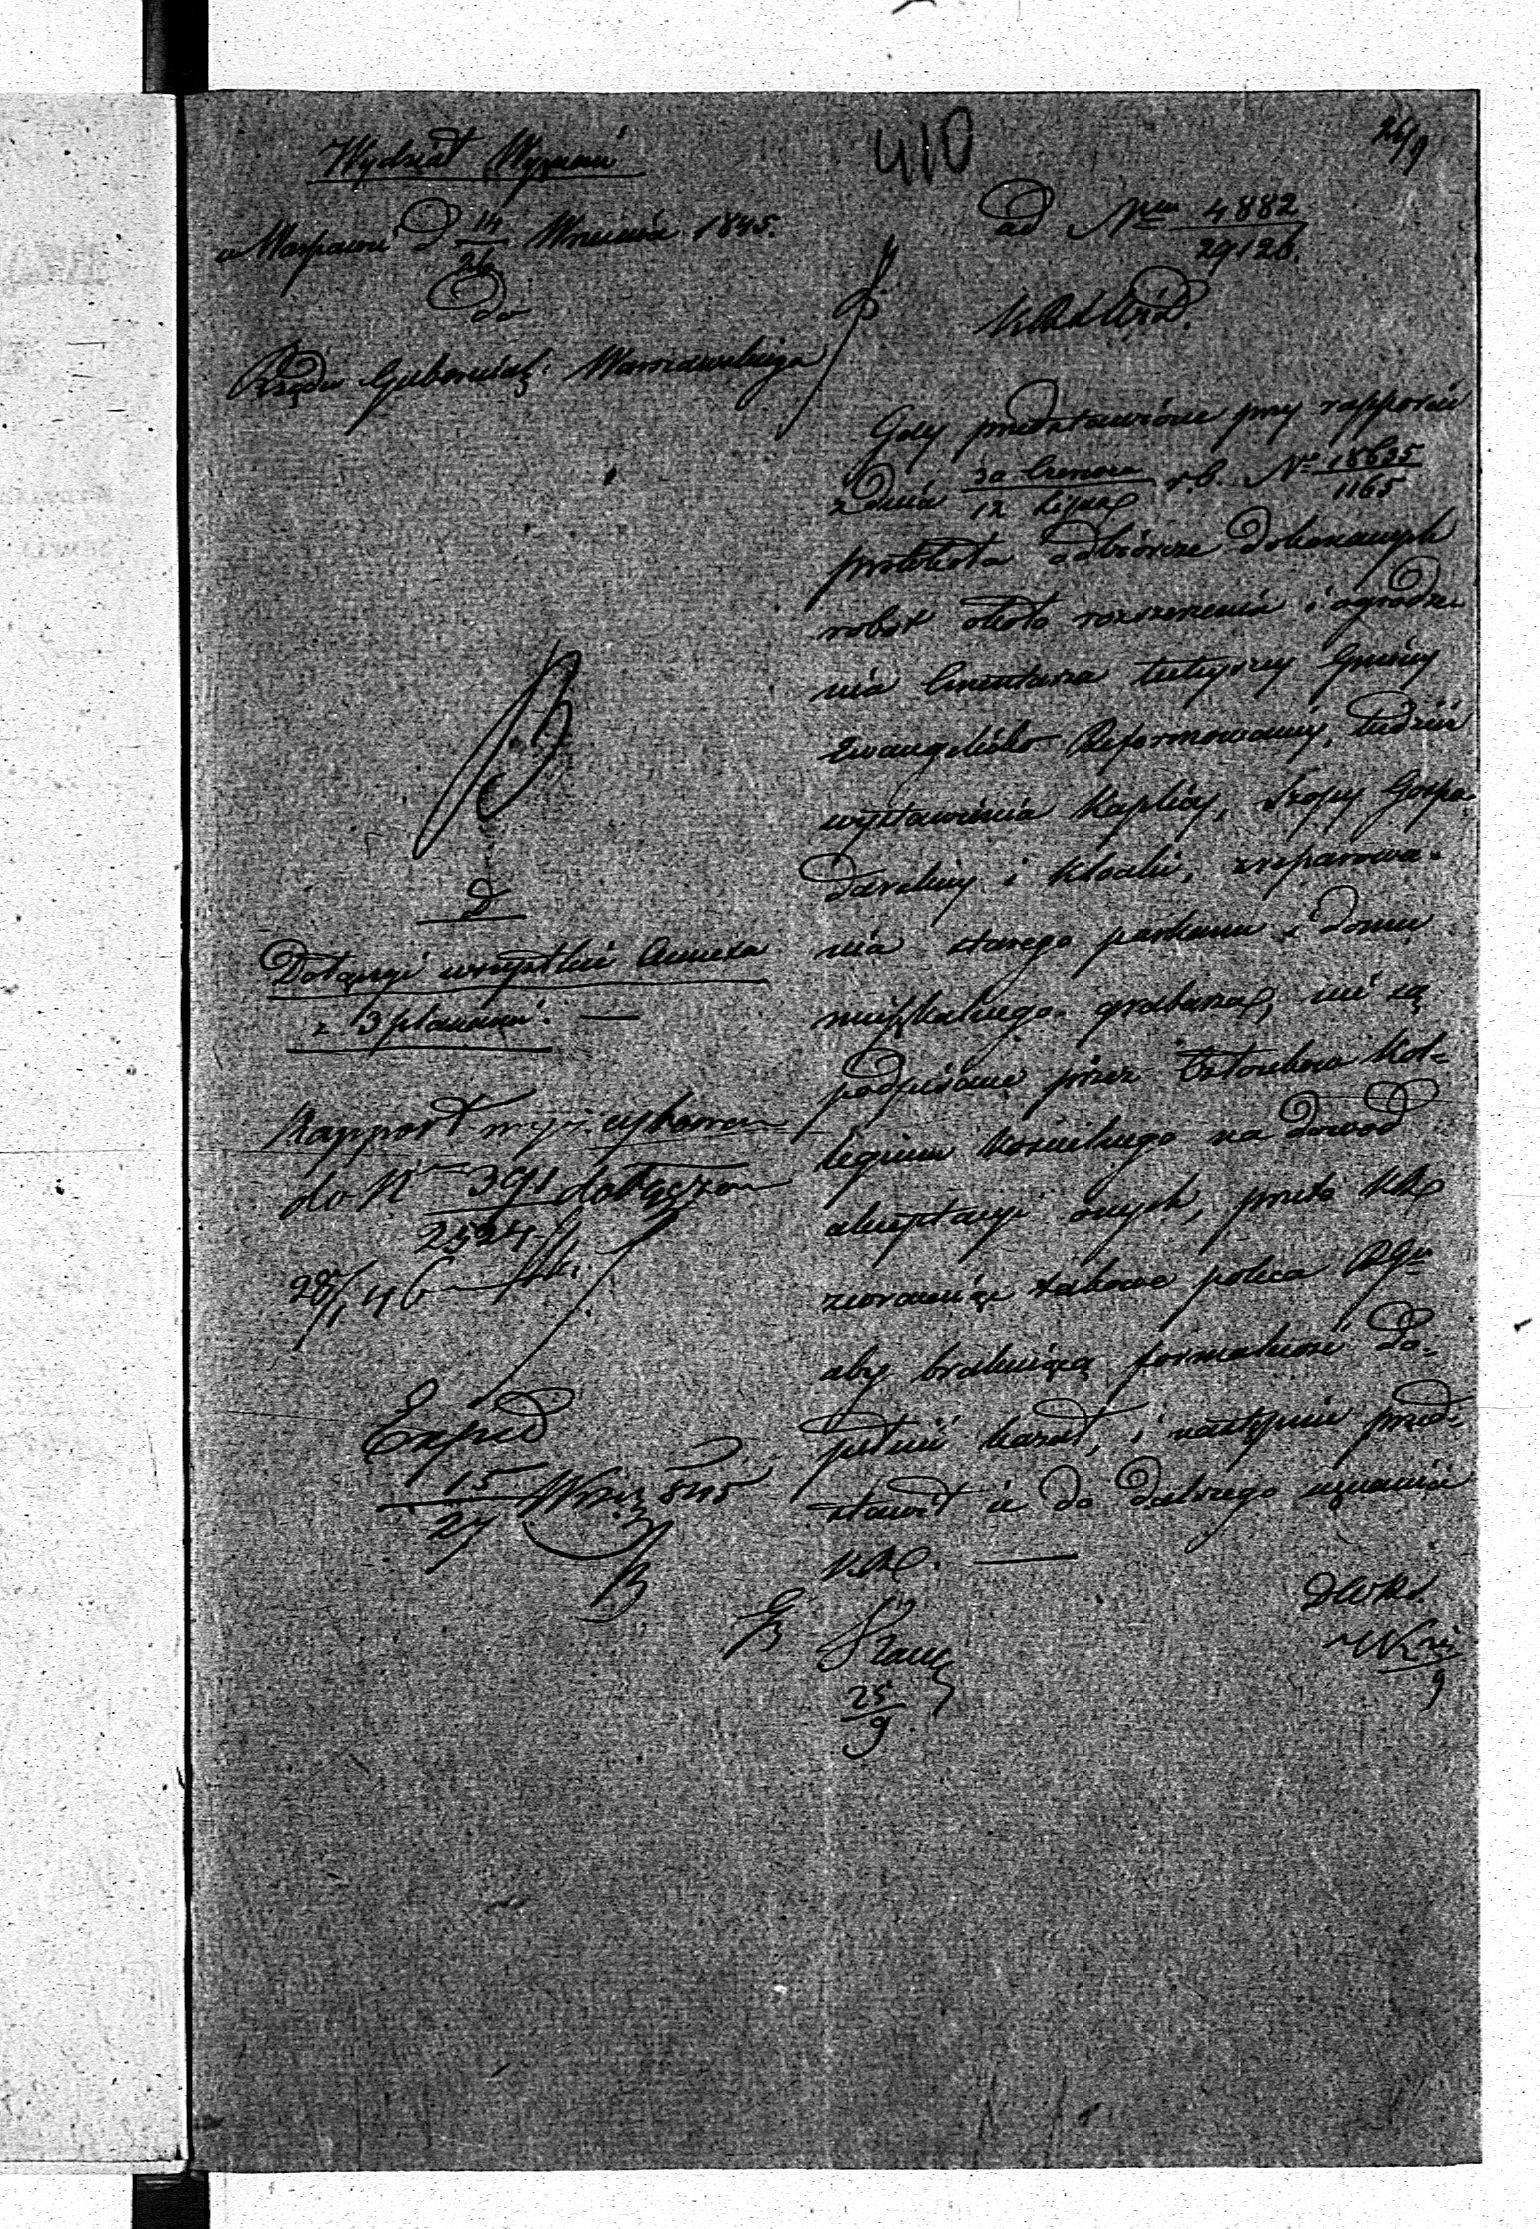 Wydział Wyznań
410
26/9
w Warszawie d 14/26 Września 1845.
ad Nrum 4882/29126.
do
Rządu Gubernial. Warszawskiego
Gdy przedstawione przy rapporcie
z dnia 30 Czerwca/12 Lipca r. b. Nr 18635/1165
protokoła odbiorcze dokonanych
robót około rozszerzenia i ogrodze-
nia Cmentarza tutejszej Gminy
Ewangelicko Reformowanej, tudzież
wystawienia Kaplicy, Szopy Gospo-
darskiej i Kloaki, zreparowa-
nia starego parkanu i domu
mieszkalnego grabarza, nie są
podpisane przez Członków Kol-
legium Kościelnego na dowód
akceptacyi onych, przeto KR
zwracając takowe poleca RGu
aby brakującą formalność do-
pełnić kazał, i następnie przed-
stawił je do dalszego uznania
KR.
Dołączyć wszystkie Annexa
z 3 planami.
Rapport wyż. cytowan
do Nr 391/2524 dołączon
28/1 46
Exped
15/27 Wrzes 845
25/9